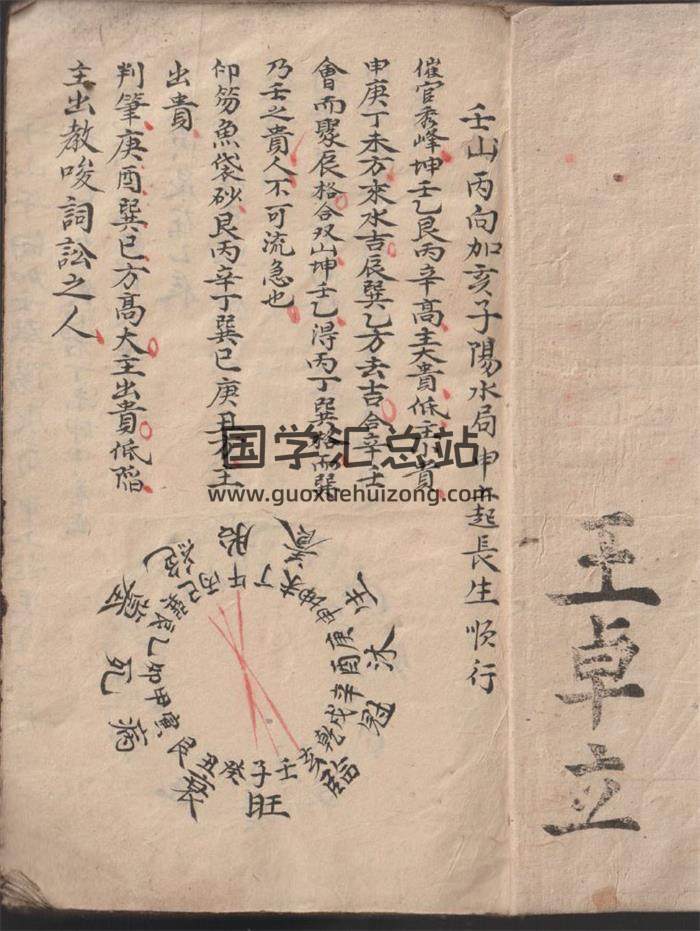 王卓立
壬山丙向加亥子陽水局申起長生順行
催官秀峰坤壬乙艮丙辛高主大貴低主小貴
申庚丁未方來水吉辰巽乙方去吉合辛壬
會而聚辰格合双山坤壬乙得丙丁巽格而巽
乃壬之貴人不可流急也
仰笏魚袋砂艮丙辛丁巽巳庚丑方主
出貴
判筆庚酉巽巳方高大主出貴低陷
主出教唆詞訟之人
胎養生沐冠臨旺衰病死墓絕
午丁未坤申庚酉辛戌乾亥壬子癸丑艮寅甲卯乙辰巽巳丙
国学汇总站
www.guoxuehuizong.com